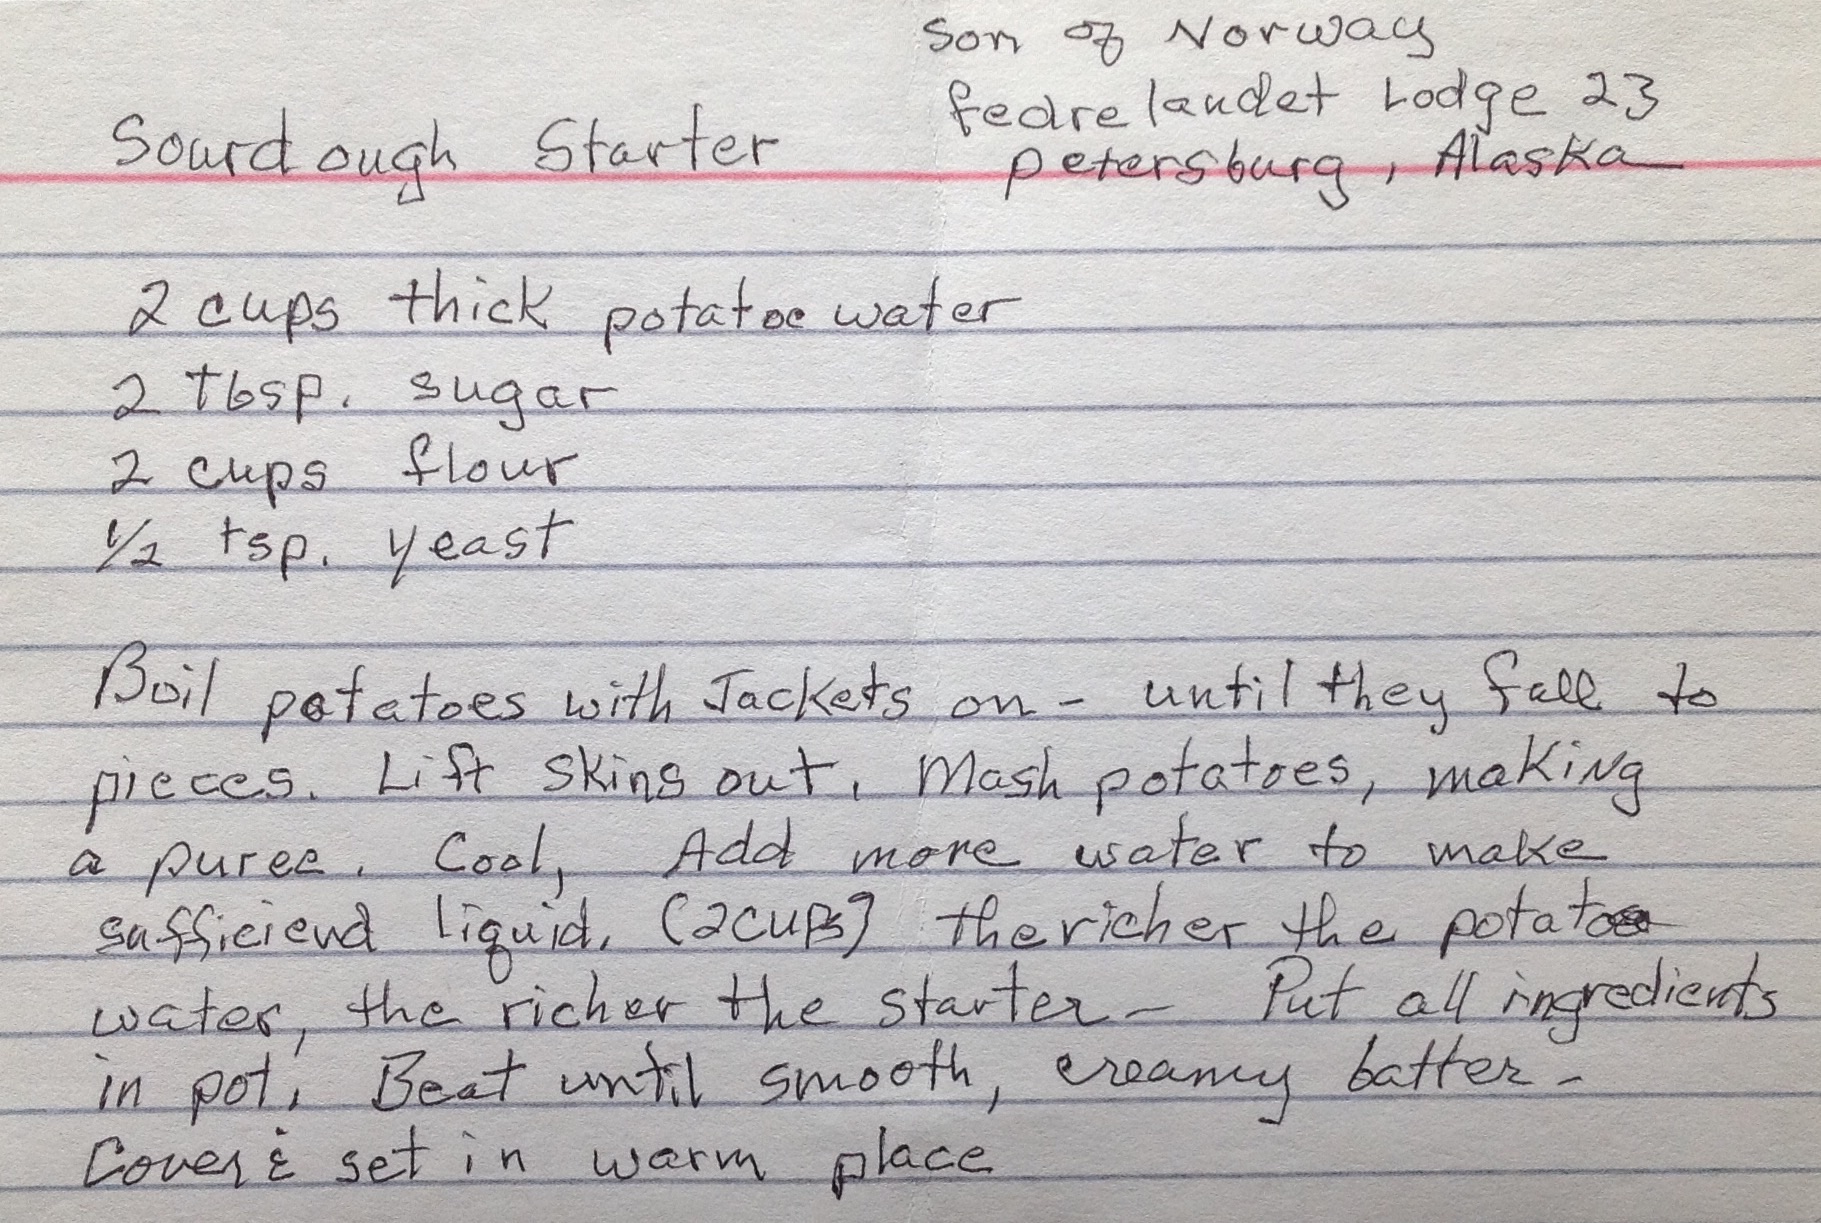 Son of Norway
fedrelandet Lodge 23
Sourdough Starter petersburg, Alaska
2 cups thick potatoe water
2 tbsp. sugar
2 cups flour
1/2 tsp. yeast
Boil potatoes with Jackets on - until they fall to
pieces. Lift skins out. Mash potatoes, making
a puree. Cool, Add more water to make
sufficiend liquid. (2 cups) the richer the potatoe
water, the richer the starter - Put all ingredients
in pot. Beat until smooth, creamy batter -
Cover & set in warm place